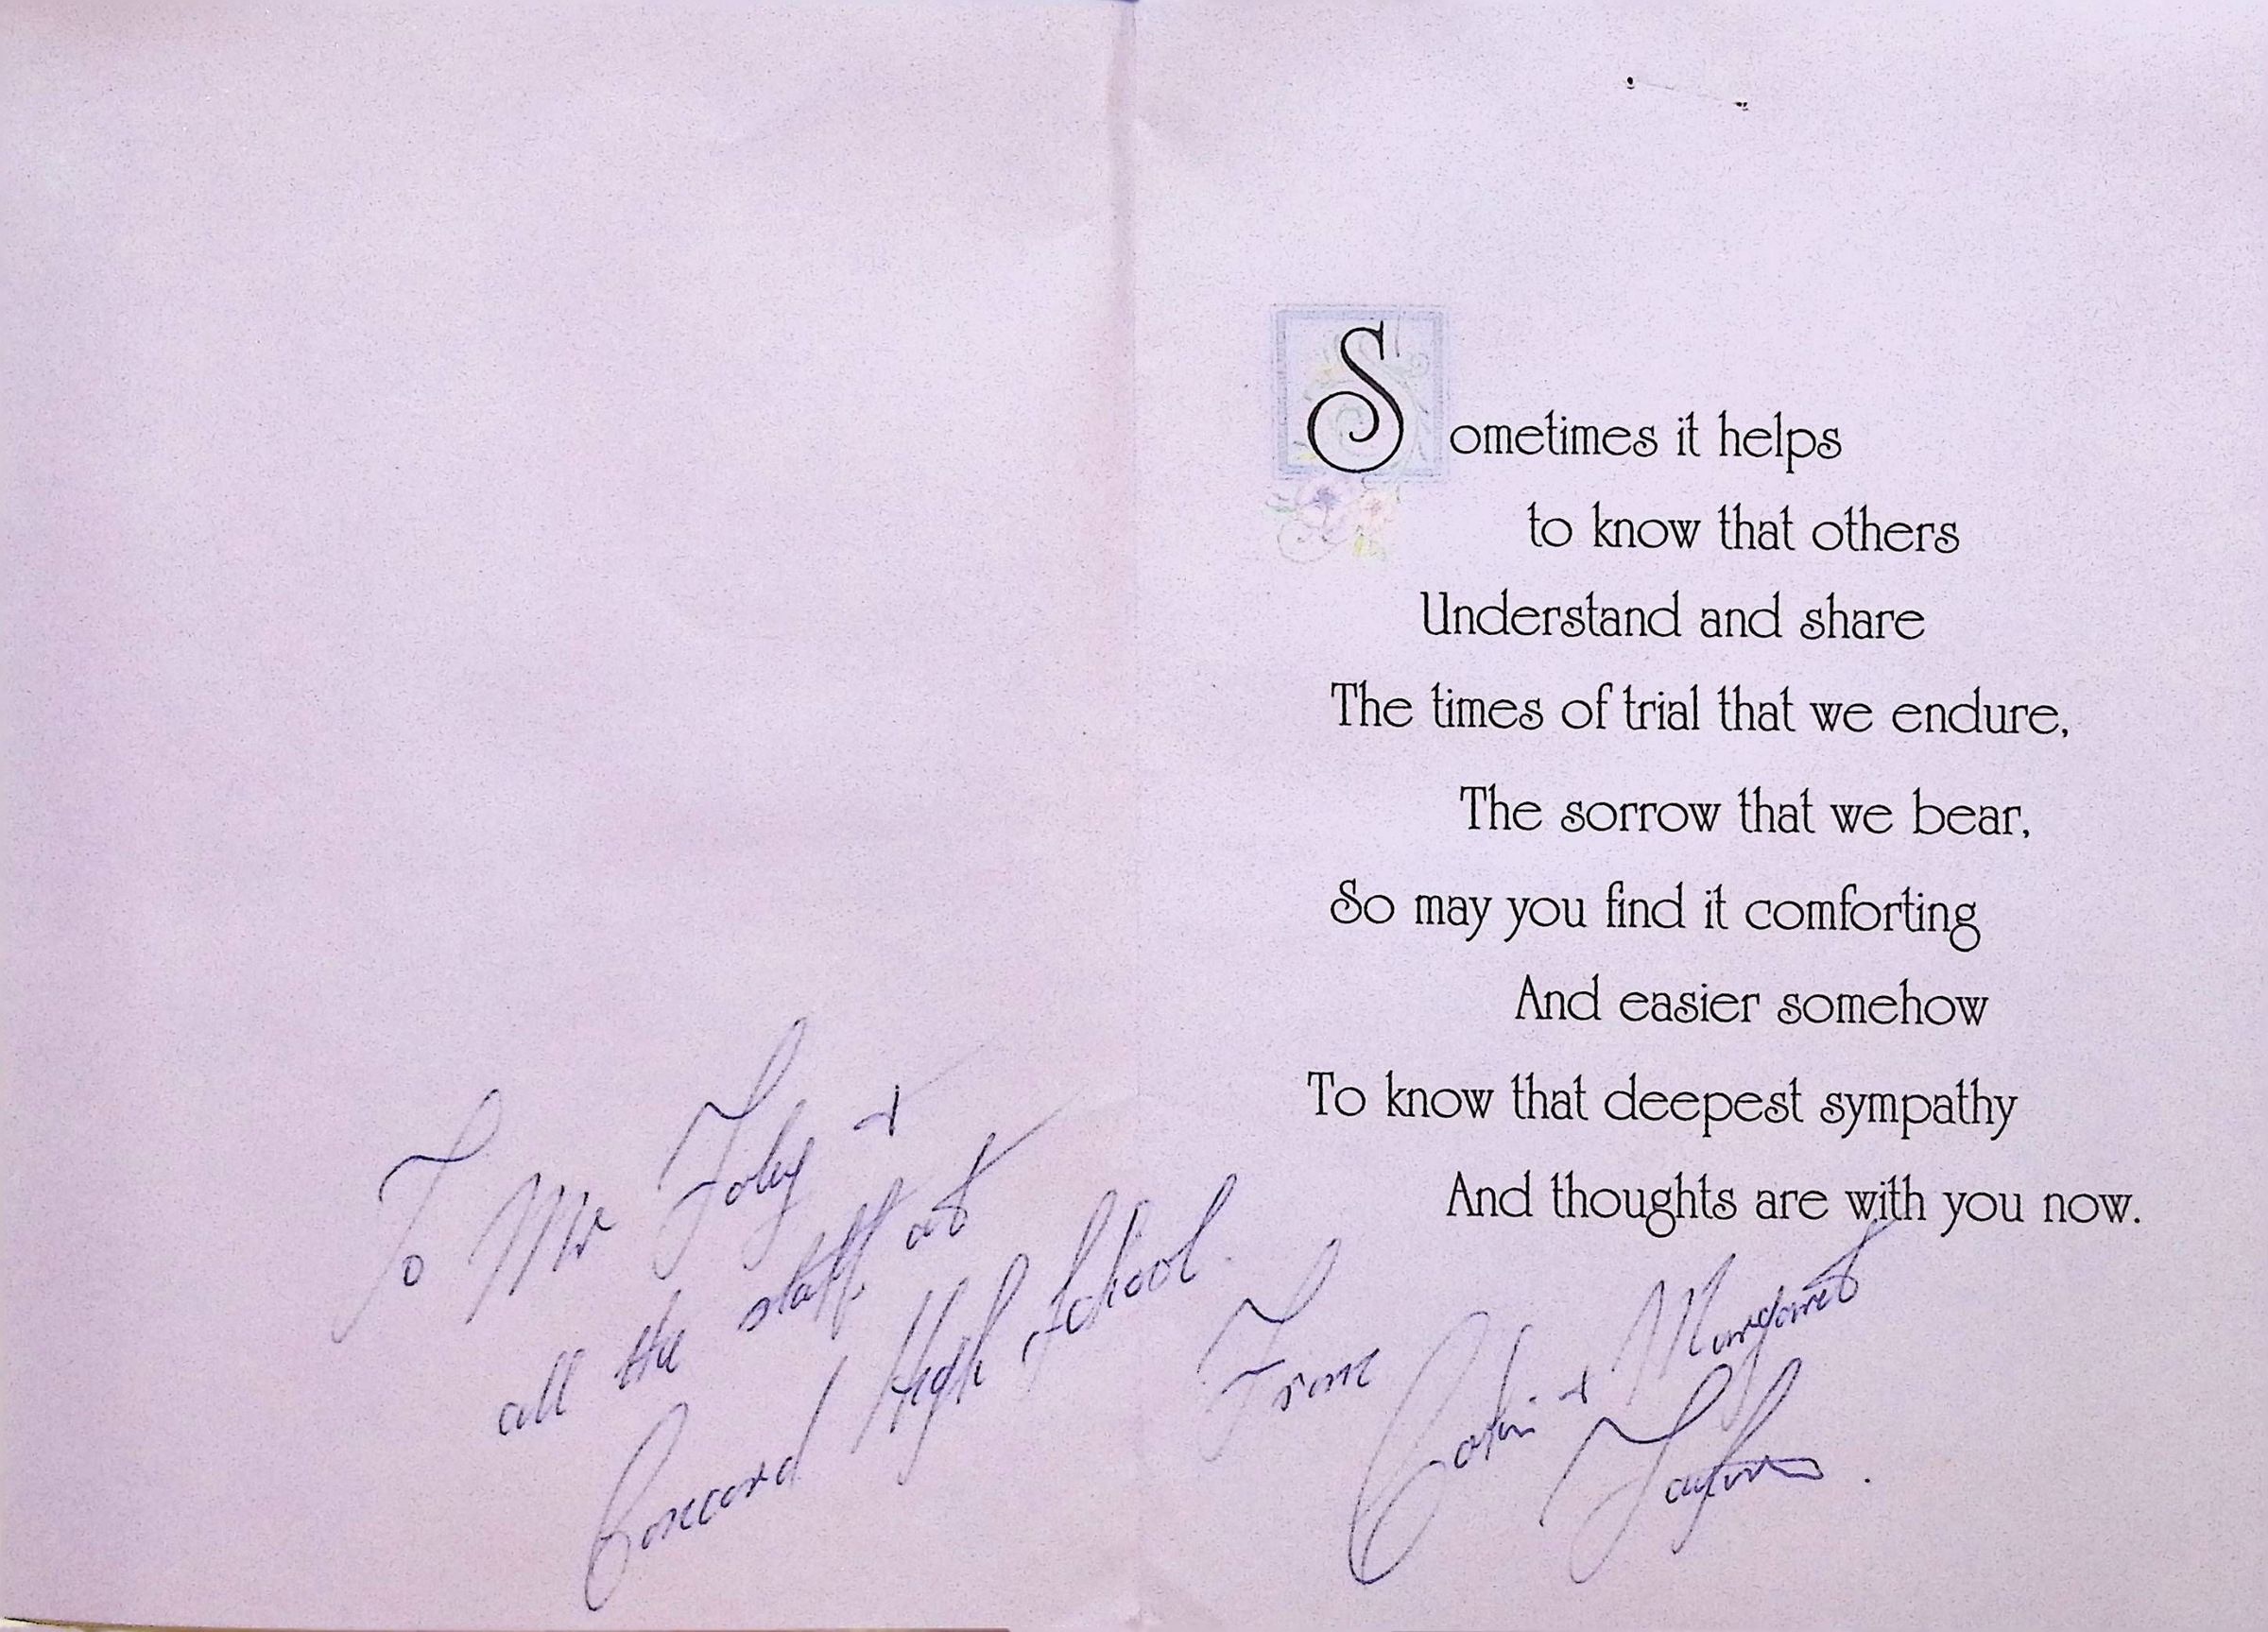 To Mr Foley +
all the staff at
Concord High School.
Sometimes it helps
to know that others
Understand and share
The times of trial that we endure,
The sorrow that we bear,
So may you find it comforting
And easier somehow
To know that deepest sympathy
And thoughts are with you now.
From
Colin + Margaret
Taylor.